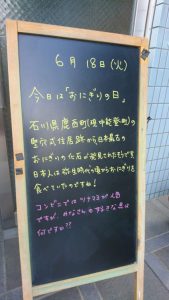 6月18日(火)
今日は「おにぎりの日」
石川県鹿西町(現中能登町)の
竪穴式住居跡から日本最古の
おにぎりの化石が発見されたそうです
日本人は弥生時代の頃からおにぎりを
食べていたのですね!
コンビニではツナマヨが人気
ですが、みなさんの好きな具は
何ですか??